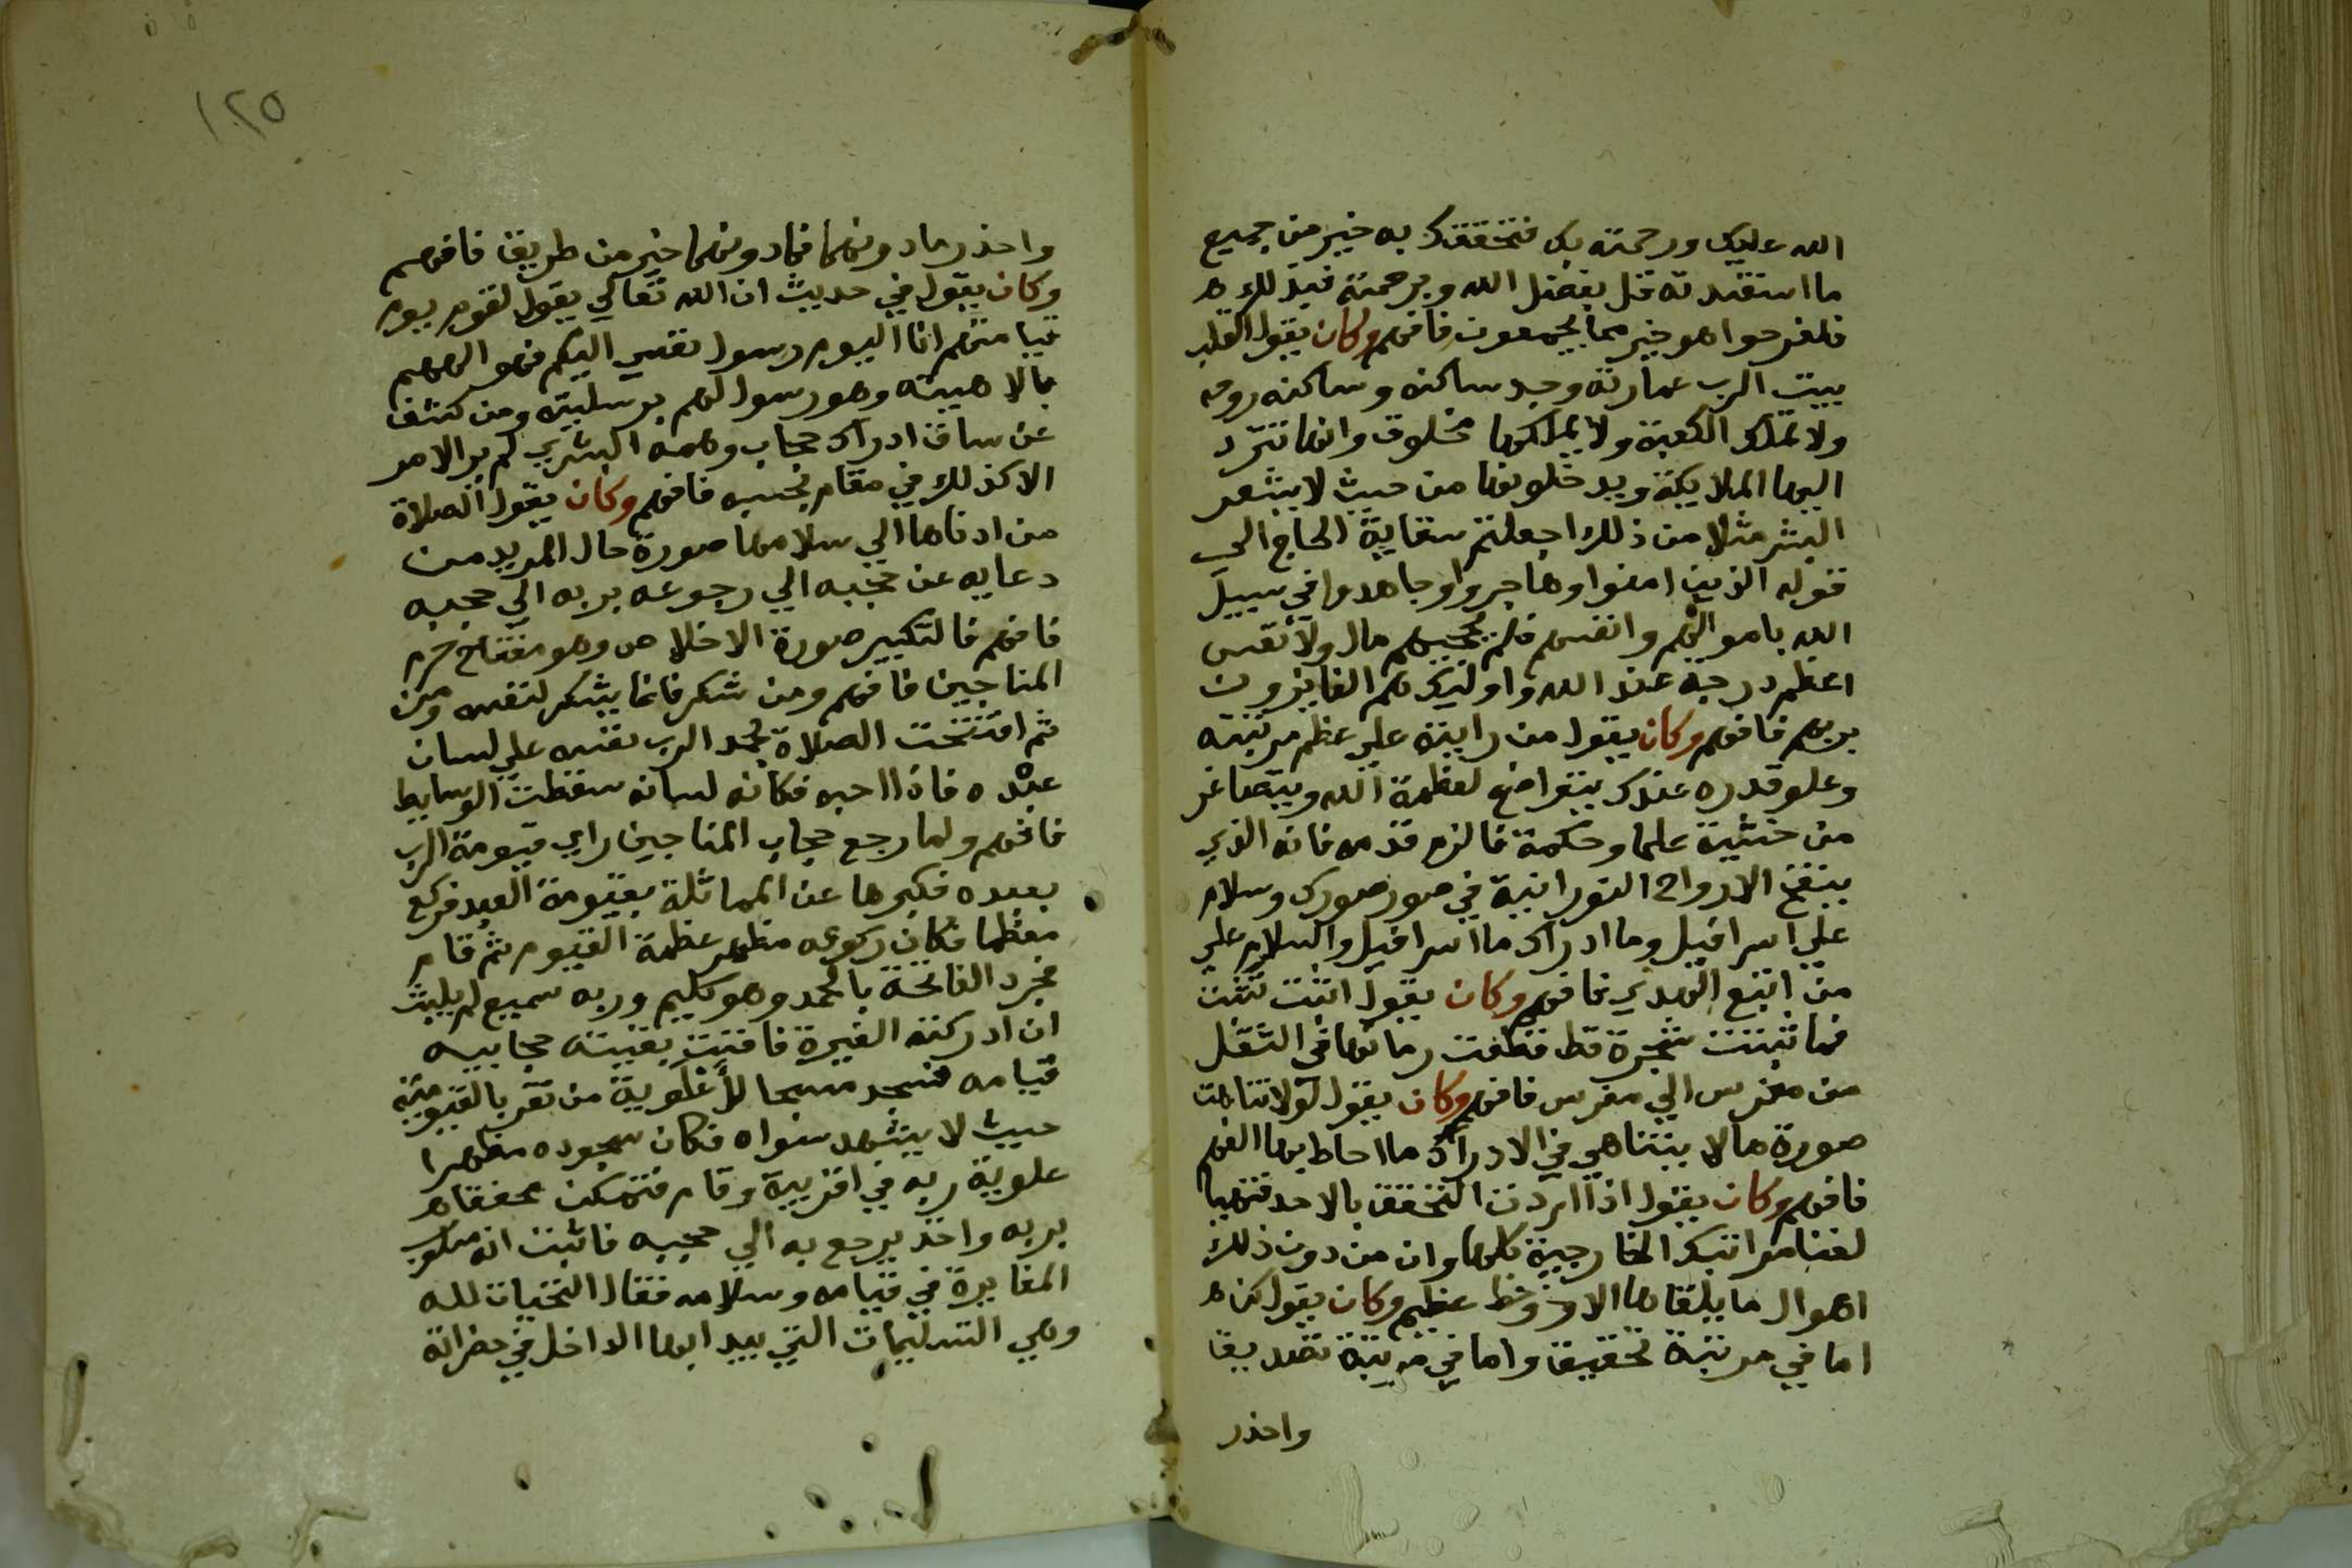 الله عليك ورحمته بك فتحققك به خير من جميع
ما استفدته قل بفضل الله وبرحمته فبذلك
فلفرحوا هو خير مما يجمعون فافهم وكان يقول القلب
بيت الرب عمارته وجد ساكنه وساكنه روحه
ولا تملك الكعبة ولا يملكها مخلوق وانما تترد
اليها الملايكة ويدخلونها من حيث لا يشعر
البشر مثلا من ذلك اجعلتم سقاية الحاج الي
قوله الذين امنوا وهاجروا وجاهدوا في سبيل
الله باموالهم وانفسهم فلم يحجبهم مال ولا نفس
اعظم درجة عند الله واوليك هم الفايزون
بربهم فافهم وكان يقول من رايته علي عظم مرتبته
وعلو قدره عندك يتواضع لعظمة الله ويتصاغر
من خشية علما وحكمة فالزم قدمه فانه الذي
ينفخ الارواح النورانية في صور صورك وسلام
علي اسرافيل وما ادراك ما اسرافيل والسلام علي
من اتبع الهدي فافهم وكان يقول اثبت تنبت
فما نبتت شجرة قط قطعت زمانها في التنقل
من مغرس الي مغرس فافهم وكان يقول لولا تناهت
صورة ما لا يتناهي في الادراك ما احاط بها الفهم
فافهم وكان يقول اذا اردت التحقق بالاحد فتهيا
لفنا مراتبك الخارجية كلها وان من دون ذلك
اهوال ما يلقاها الا ذو حظ عظيم وكان يقول كن
اما في مرتبة تحقيق واما في مرتبة تصديق
واحذر
١٢٥
واحذر ما دونهما فما دونهما خير من طريق فافهم
وكان يقول في حديث ان الله تعالي يقول لقوم يوم
قيامتهم انا اليوم رسول نفسي اليكم فهو الههم
بالاهيته وهو رسول لهم برسليته ومن كشف
عن ساق ادراك حجاب وهمه البشري لم ير الامر
الا كذلك في مقام بحسبه فافهم وكان يقول الصلاة
من ادناها الي سلامها صورة حال المريد من
دعايه عن حجبه الي رجوعه بربه الي حجبه
فافهم فالتكبير صورة الاخلاص وهو مفتاح حرم
المناجين فافهم ومن شكر فانما يشكر لنفسه ومن
ثم افتتحت الصلاة بحمد الرب نفسه علي لسان
عبده فاذا احبه فكانه لسانه سقطت الوسايط
فافهم ولما رجع حجاب المناجين راي قيومة الرب
بعبده فكبرها عن المماثلة بقيومة العبد فركع
معظما فكان ركوعه مظهر عظمة القيوم ثم قام
مجرد الفاتحة بالحمد وهو كليم وربه سميع لم يلبث
ان ادركته الغيرة فافنت بقيته حجابيه
قيامه فسجد مسبحا للأعلوية من تعر بالقيومية
حيث لا يشهد سواه فكان سجوده مظهرا
علوية ربه في اقربية وقام فتمكن محققا
بربه واخذ يرجع به الي حجبه فاثبت انه مسلوب
المغايرة في قيامه وسلامه فقال التحيات لله
وهي التسليمات التي يبدا بها الداخل في حضراته